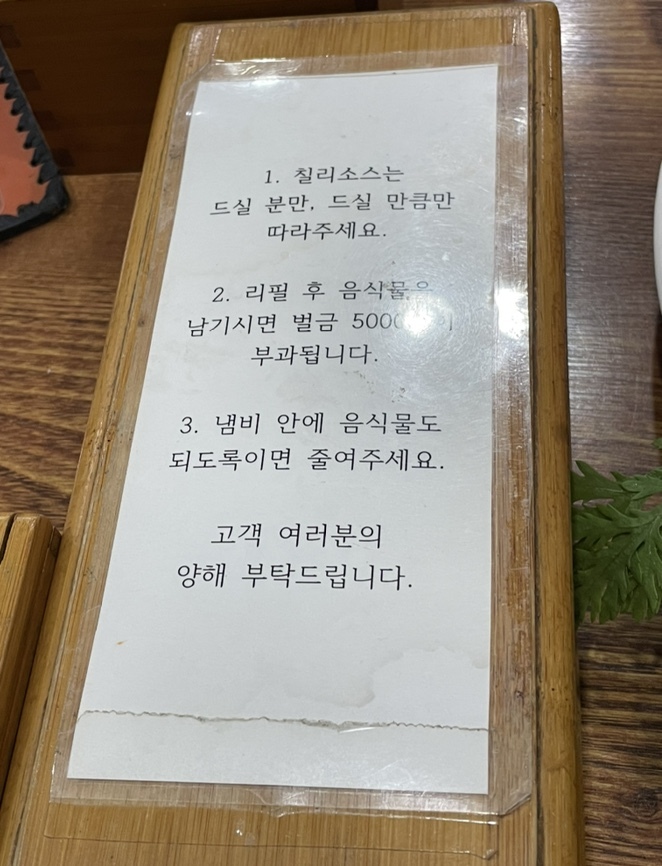 1. 칠리소스는
드실 분만, 드실 만큼만
따라주세요.
2. 리필 후 음식물을
남기시면 벌금
부과됩니다.
3. 냄비 안에 음식물도
되도록이면 줄여주세요.
고객 여러분의
양해 부탁드립니다.